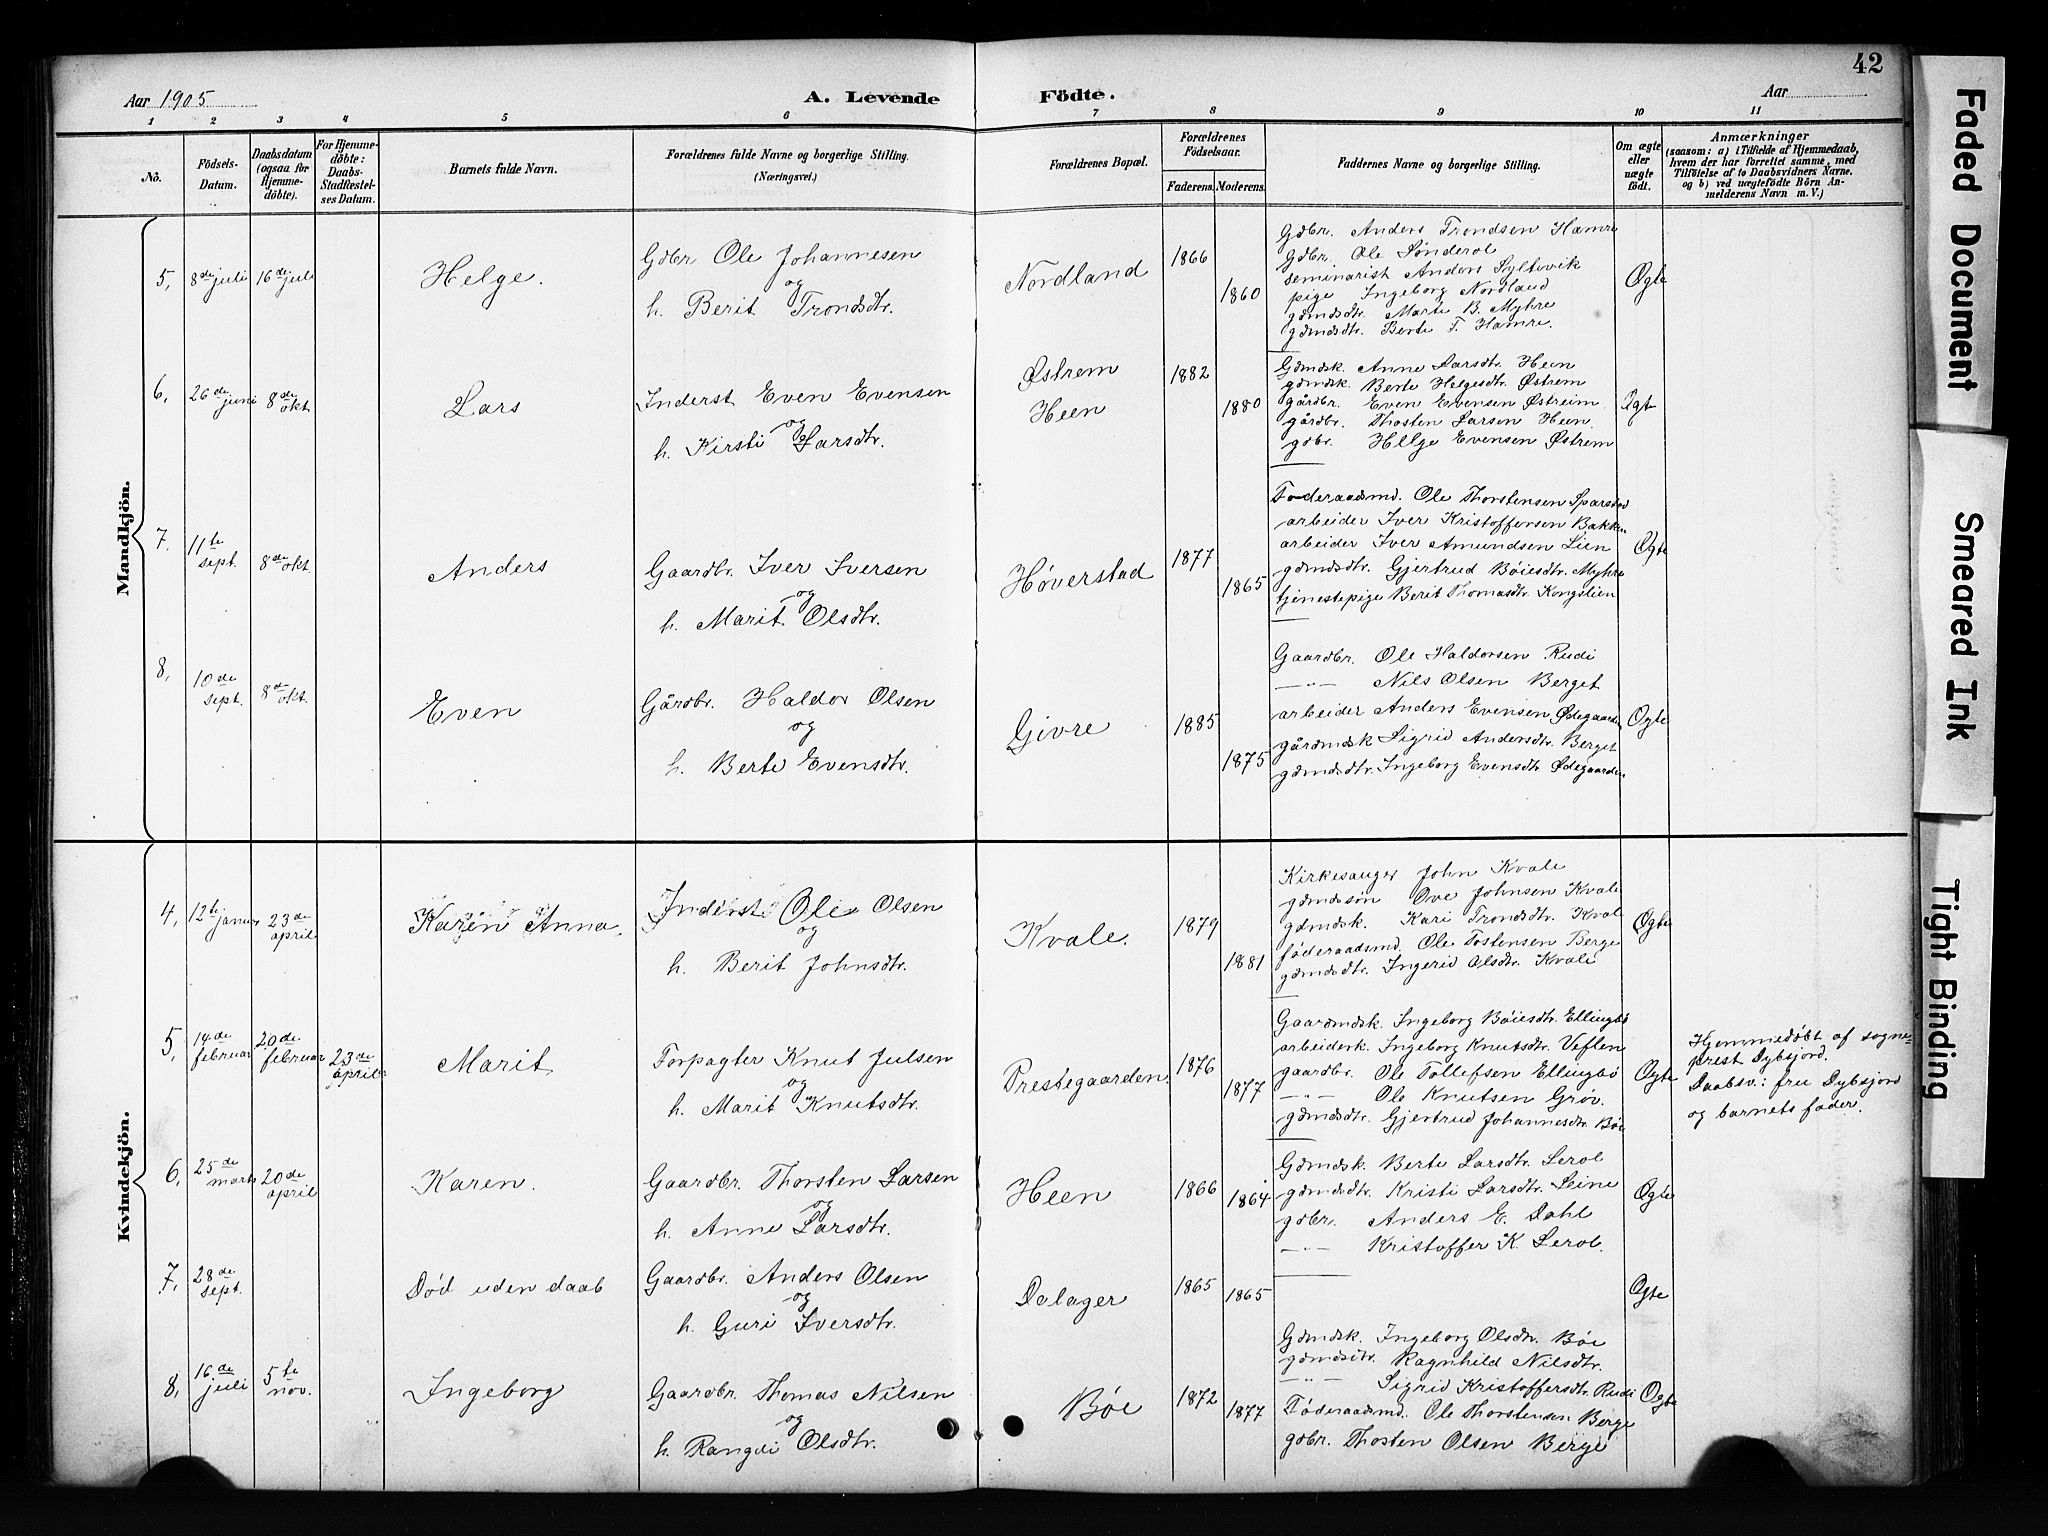 42
Aar 1905
A. Levende Födte.
Aar
1 2 3 4 5 6 7 8 9 10 11
No.
Födsels-Datum.
Daabsdatum (ogsaa for Hjemmedöbte).
For Hjemmedöbte: Daabs-Stadfæstelses Datum.
Barnets fulde Navn.
Forældrenes fulde Navne og borgerlige Stilling.
(Næringsvei.)
Forældrenes Bopæl.
Forældrenes Födselsaar.
Faderens. Moderens.
Faddernes Navne og borgerlige Stilling.
Om ægte eller uægte födt.
Anmærkninger
(saasom: a) i Tilfælde af Hjemmedaab,
hvem der har forrettet samme, med
Tilföielse af to Daabsvidners Navne.
og b) ved uægtefödte Börn An-
melderens Navn m. V.)
Mandkjön.
5, 8de juli 16de juli
Helge.
Gdbr Ole Johannesen
og
h. Berit Trondsdtr.
Nordland
1866
1860
Gdbr. Anders Trondsen Hamre
Gdbr. Ole Sønderol
seminarist Anders Syltevik
pige Ingeborg Nordland
gdmdsdtr. Marte B. Myhre
gdmdsdtr. Berte T. Hamre.
Øgte
6, 26de juni 8de okt
Lars
Inderst Even Evensen
og
h. Kirsti Larsdtr.
Østrem
Heen
1882
1880
Gdmdsk. Anne Larsdtr. Heen
gdmdsk. Berte Helgesdtr. Østrem
gårdbr. Even Evensen Østreim
gårdbr. Thosten Larsen Heen
gdbr. Helge Evensen Østrem
Øgte
7, 11te sept. 8de okt.
Anders
Gaardbr. Iver Iversen
og
h. Marit Olsdtr.
Høverstad
1877
1865
Føderaadsmd. Ole Thorstensen Sparstad
arbeider Iver Kristoffersen Bakken
arbeider Iver Amundsen Lien
gdmdsdtr. Gjertrud Bøiesdtr. Myhre
tjenestepige Berit Thomasdtr. Kongslien
Øgte
8, 10de sept. 8de okt.
Even
Gårdbr. Haldor Olsen
og
h. Berte Evensdtr.
Givre
1885
1875
Gaardbr. Ole Haldorsen Rudi
—"— Nils Olsen Berget
arbeider Anders Evensen Ødegaarden
gårdmdsk Sigrid Andersdtr. Berget
gdmdsdtr. Ingeborg Evensdtr Ødegaarden
Øgte
Kvindekjön.
4, 12te januar 23de april
Karen Anna
Inderst Ole Olsen
og
h. Berit Johnsdtr.
Kvale.
1879
1881
Kirkesanger John Kvale
gdmdssøn Ove Johnsen Kvale
gdmdsk. Kari Trondsdtr. Kvale
føderaadsmd. Ole Tostensen Berge
gdmdsdtr. Ingerid Olsdtr. Kvale
Øgte
5, 14de februar 20de februar 23de april
Marit
Forpagter Knut Julsen
og
h. Marit Knutsdtr.
Prestegaarden.
1876
1877
Gaardmdsk. Ingeborg Bøiesdtr. Ellingbø
arbeiderk. Ingeborg Knutsdtr. Veflen
gaardbr. Ole Tollefsen Ellingbø
—"— Ole Knutsen Grøv.
gdmdsdtr. Gjertrud Johannesdtr. Bøe
Øgte
Hjemmedøbt af sogne-
prest Dybsjord.
Daabsv.: fru Dybsjord
og barnets fader.
6, 25de marts 20de april
Karen.
Gaardbr. Thorsten Larsen
og
h. Anne Larsdtr.
Heen
1866
1864
Gdmdsk. Berte Larsdtr. Lerol
gdmdsdtr. Kristi Larsdtr. Leine
gdbr. Anders E. Dahl
—"— Kristoffer K. Lerol.
Øgte
7, 28de sept.
Død uden daab
Gaardbr. Anders Olsen
og
h. Guri Iversdtr.
Dalager
1865
1865
Øgte
8, 16de juli 5te nov.
Ingeborg
Gaardbr. Thomas Nilsen
og
h. Rangdi Olsdtr.
Bøe
1872
1877
Gdmdsk. Ingeborg Olsdtr. Bøe
gdmdsdtr. Ragnhild Nilsdtr.
—"— Sigrid Kristoffersdtr. Rudi
Føderaadsmd. Ole Thorstensen Berge
gdbr. Thosten Olsen Berge
Øgte
Faded Document
Smeared Ink
Tight Binding